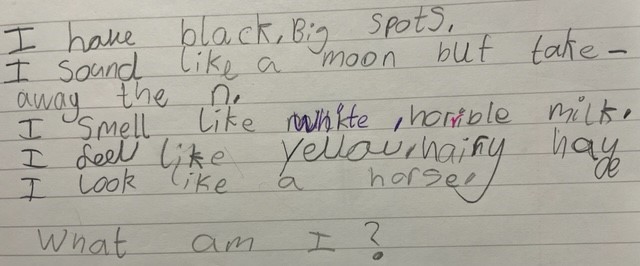 I have black, Big spots.
I sound like a moon but take-
away the n.
I smell like white, horrible milk.
I feel like yellow, hairy hay
I look like a horse,
What am I?